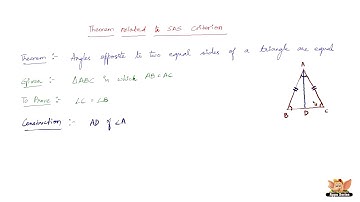 Theorem related to SAS Criterion
Theorem :- Angles opposite to two equal sides of a triangle are equal
Given :- ΔABC in which AB = AC
To Prove :- ∠C = ∠B
Construction :- AD of ∠A
A
B D C